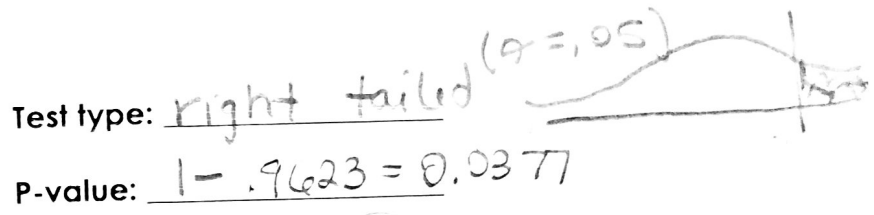 Test type: right tailed (α = .05)
P-value: 1 - .9623 = 0.0377